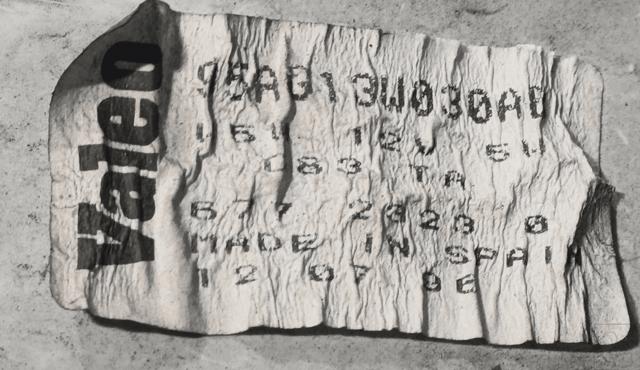 Valeo
95AG13W030AB
16W 12V 5W
C83 TA
677 2323 0
MADE IN SPAIN
12 07 96